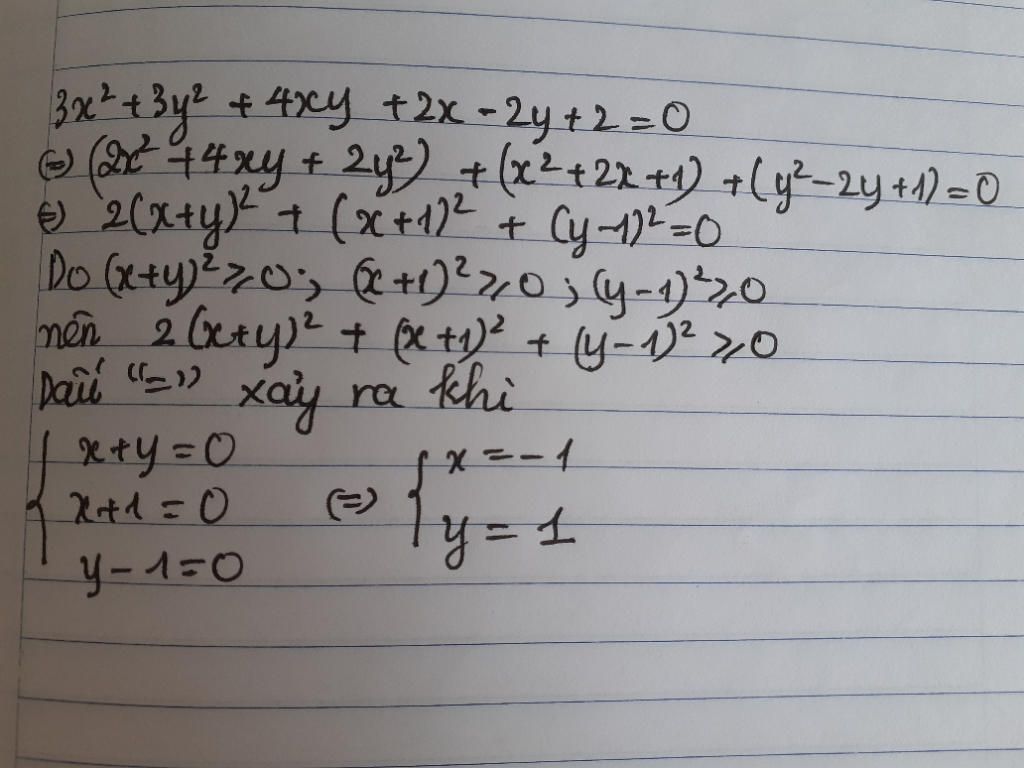 3x² + 3y² + 4xy + 2x - 2y + 2 = 0
(=) (2x² + 4xy + 2y²) + (x² + 2x + 1) + (y² - 2y + 1) = 0
(=) 2(x+y)² + (x+1)² + (y-1)² = 0
Do (x+y)² ⩾ 0; (x+1)² ⩾ 0; (y-1)² ⩾ 0
nên 2(x+y)² + (x+1)² + (y-1)² ⩾ 0
Dấu "=" xảy ra khi
{ x+y = 0
x+1 = 0 (=) { x = -1
y-1 = 0 y = 1